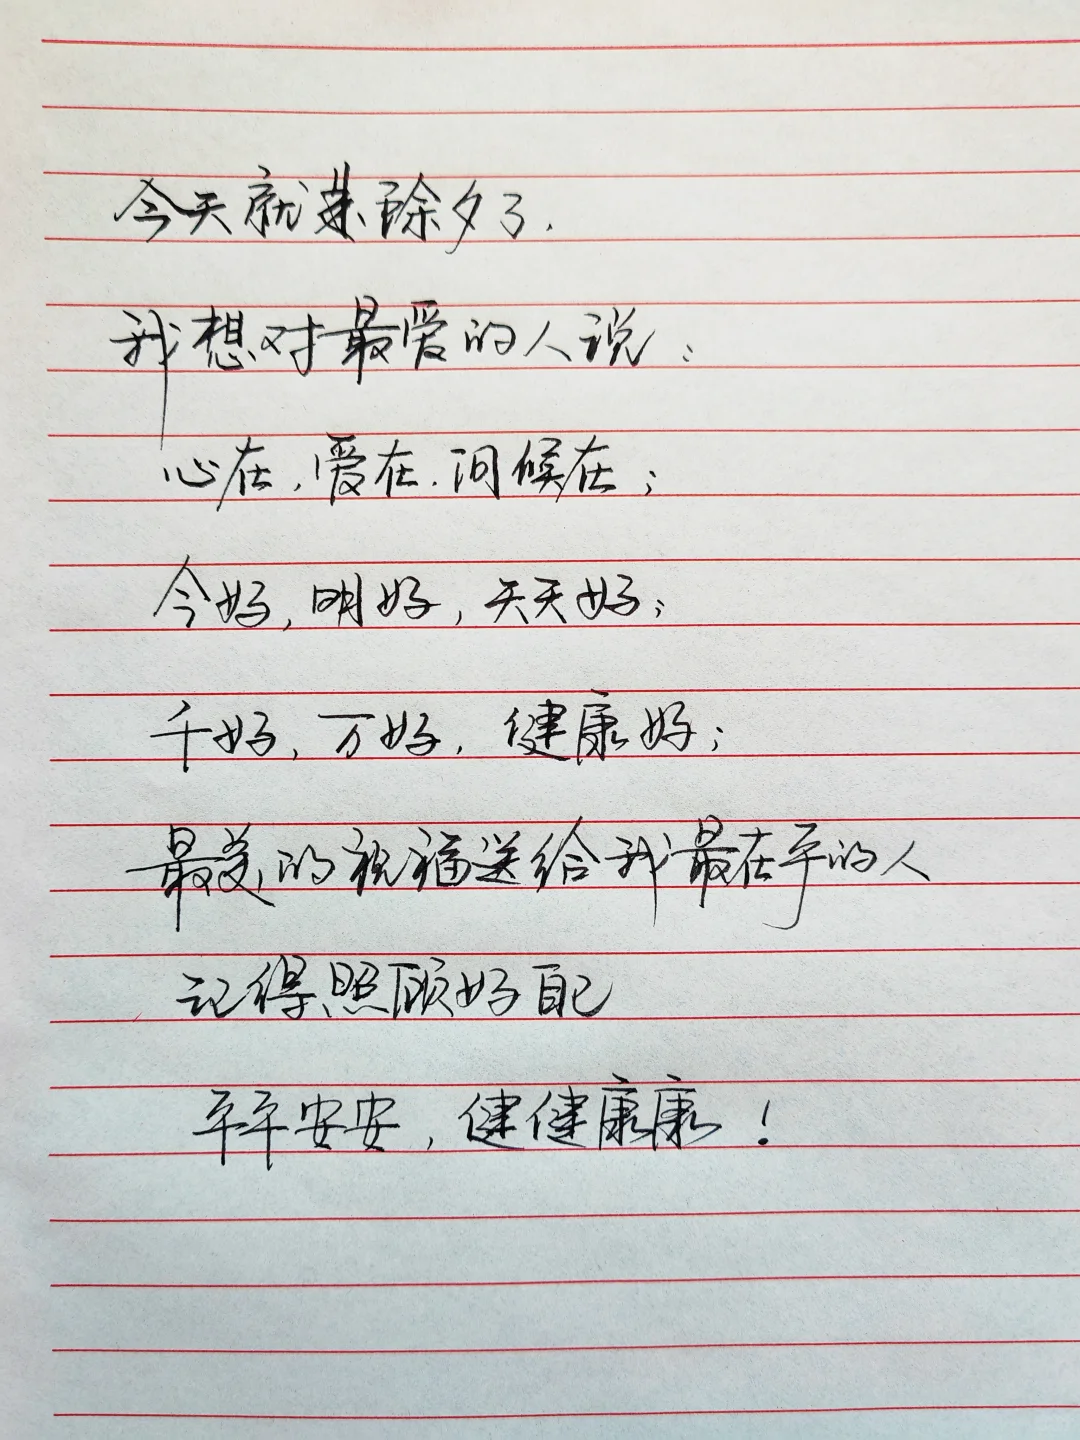 今天就是除夕了.
我想对最爱的人说:
心在,爱在.问候在;
今好,明好,天天好;
千好,万好,健康好;
最美的祝福送给我最在乎的人
记得照顾好自己
平平安安,健健康康!